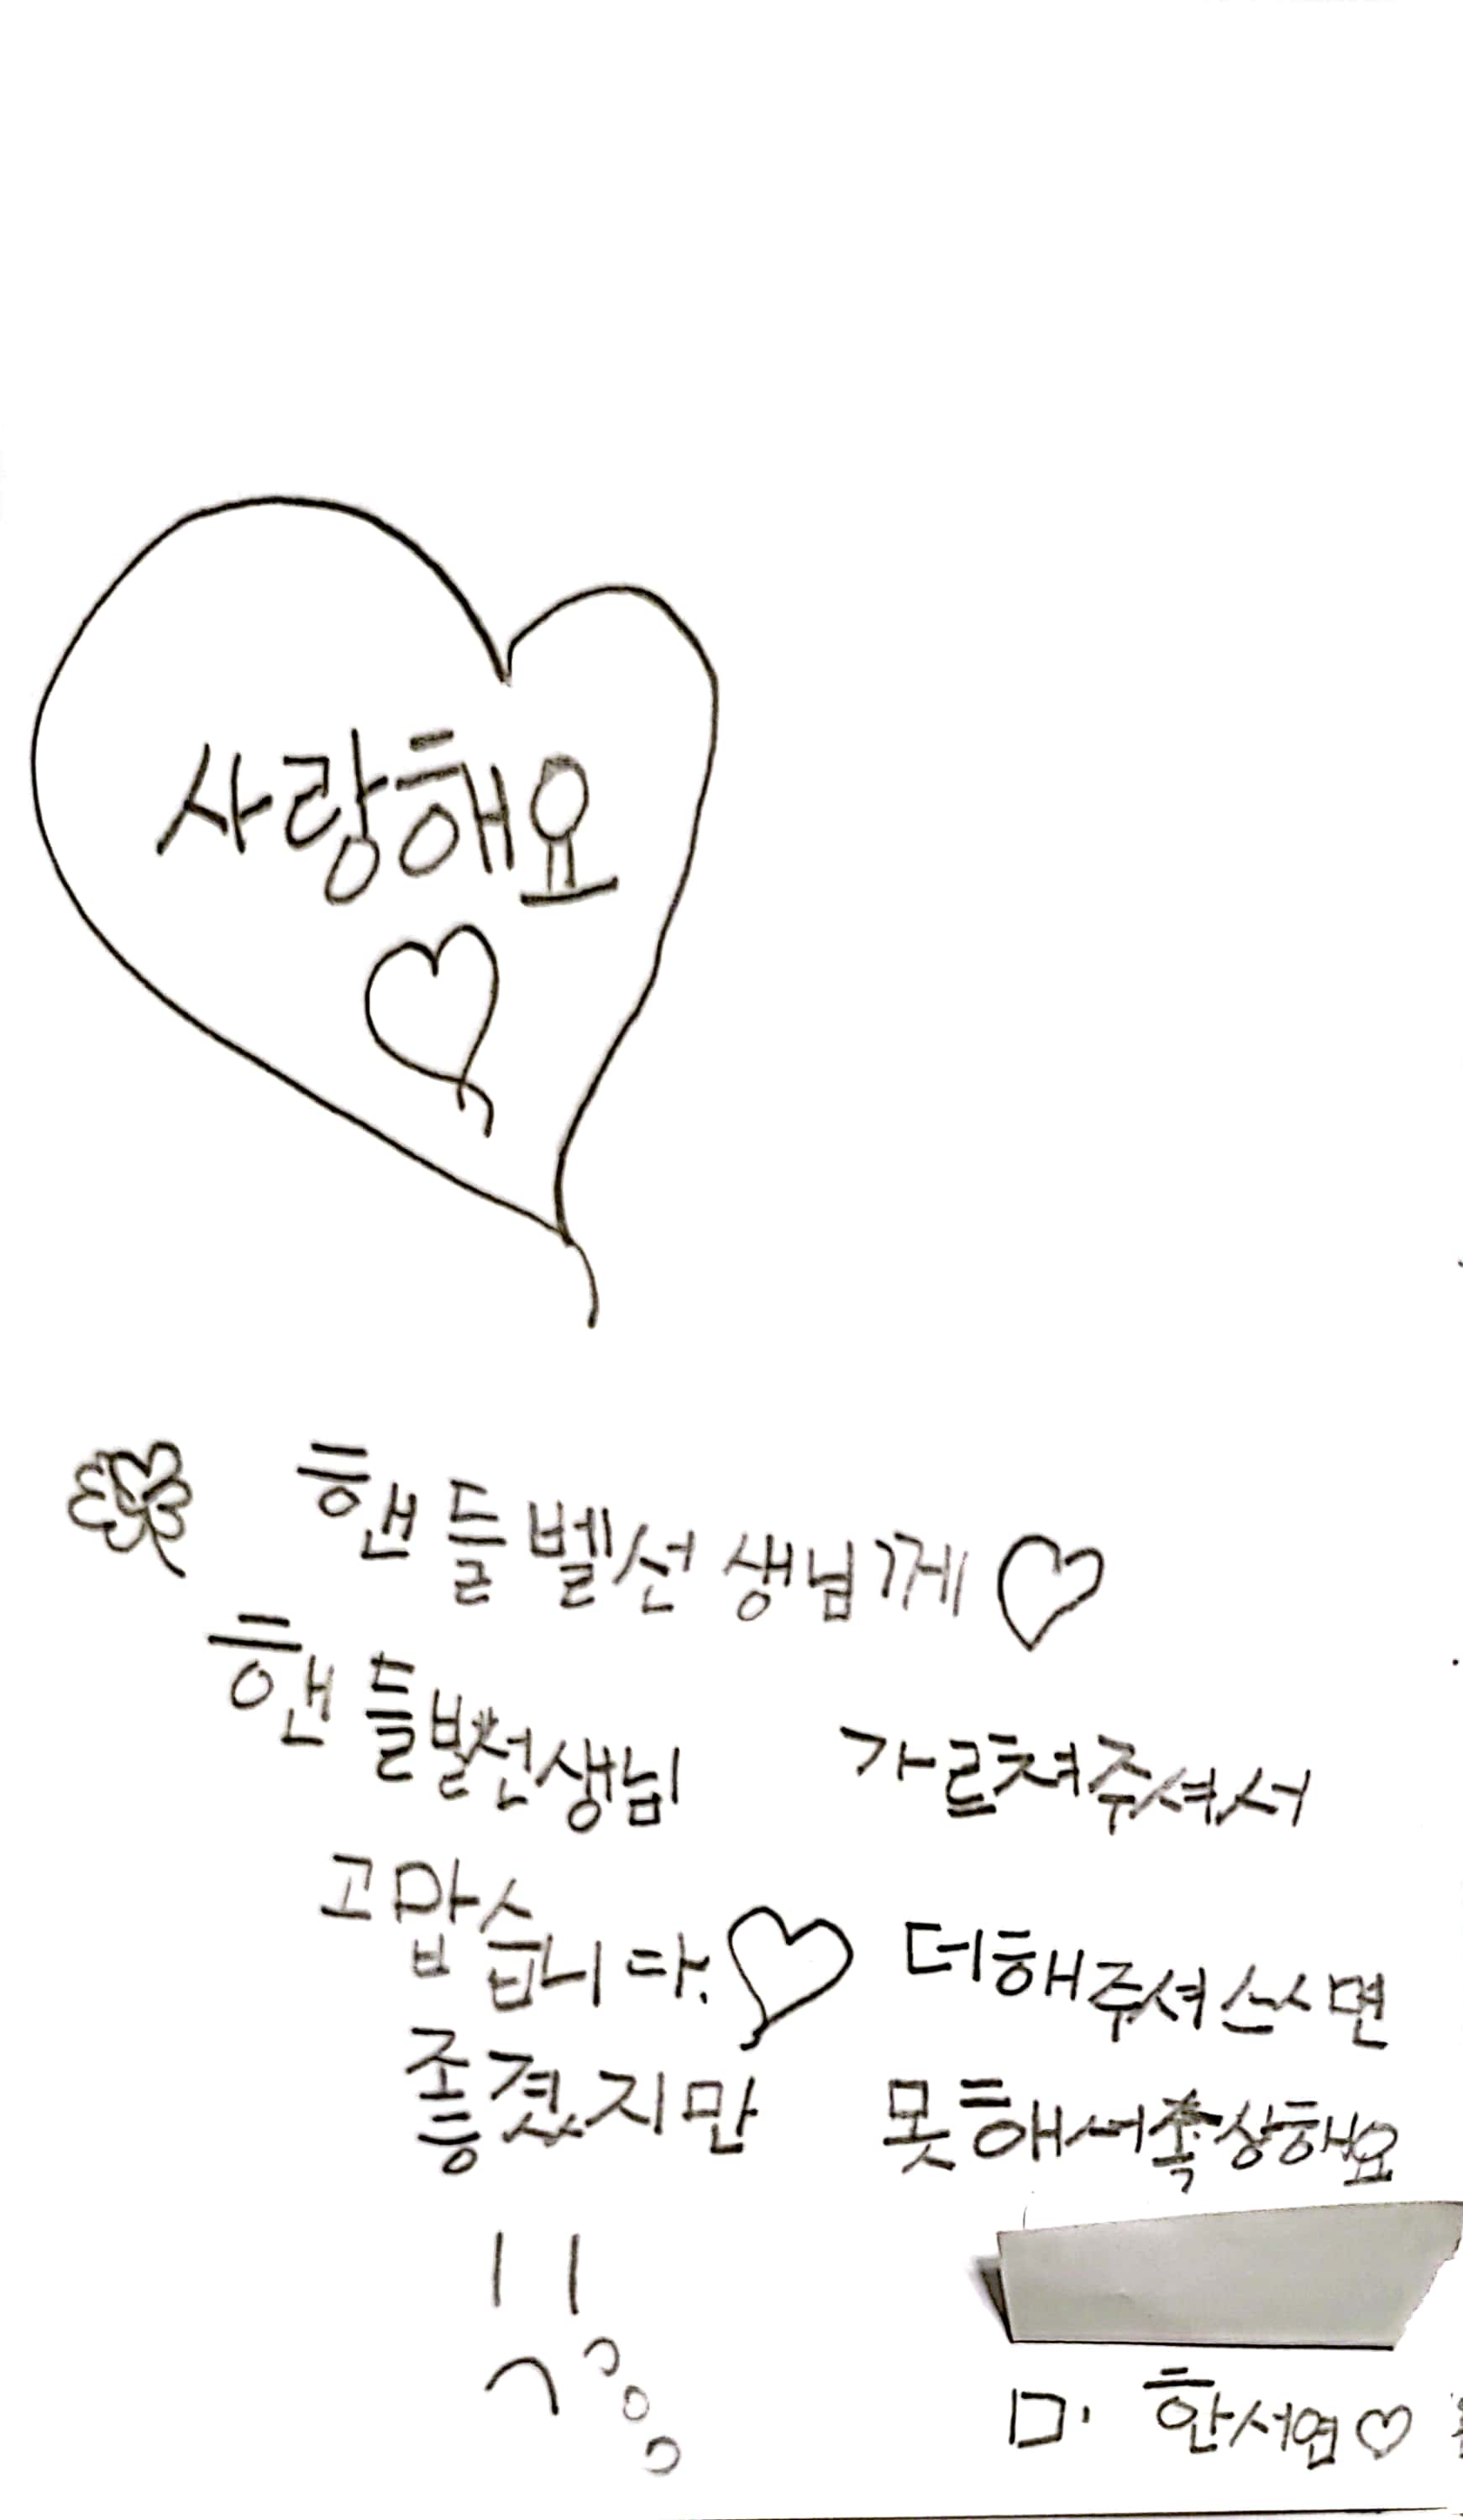 사랑해요
핸들벨선생님께
핸들벨선생님 가르쳐주셔서
고맙습니다. 더해주셔스시면
좋겼지만 못해서 속상해요
한서연